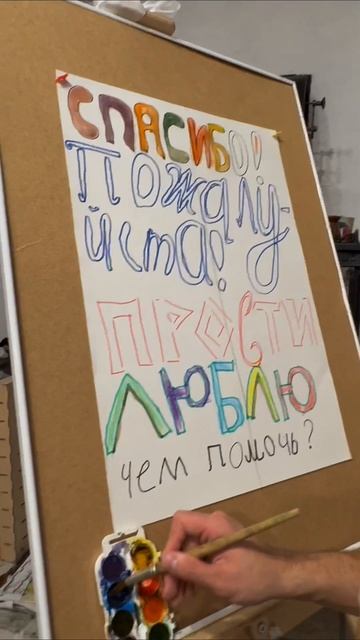 СПАСИБО!
Пожалу-
йста!
ПРОСТИ
ЛЮБЛЮ
чем помочь?